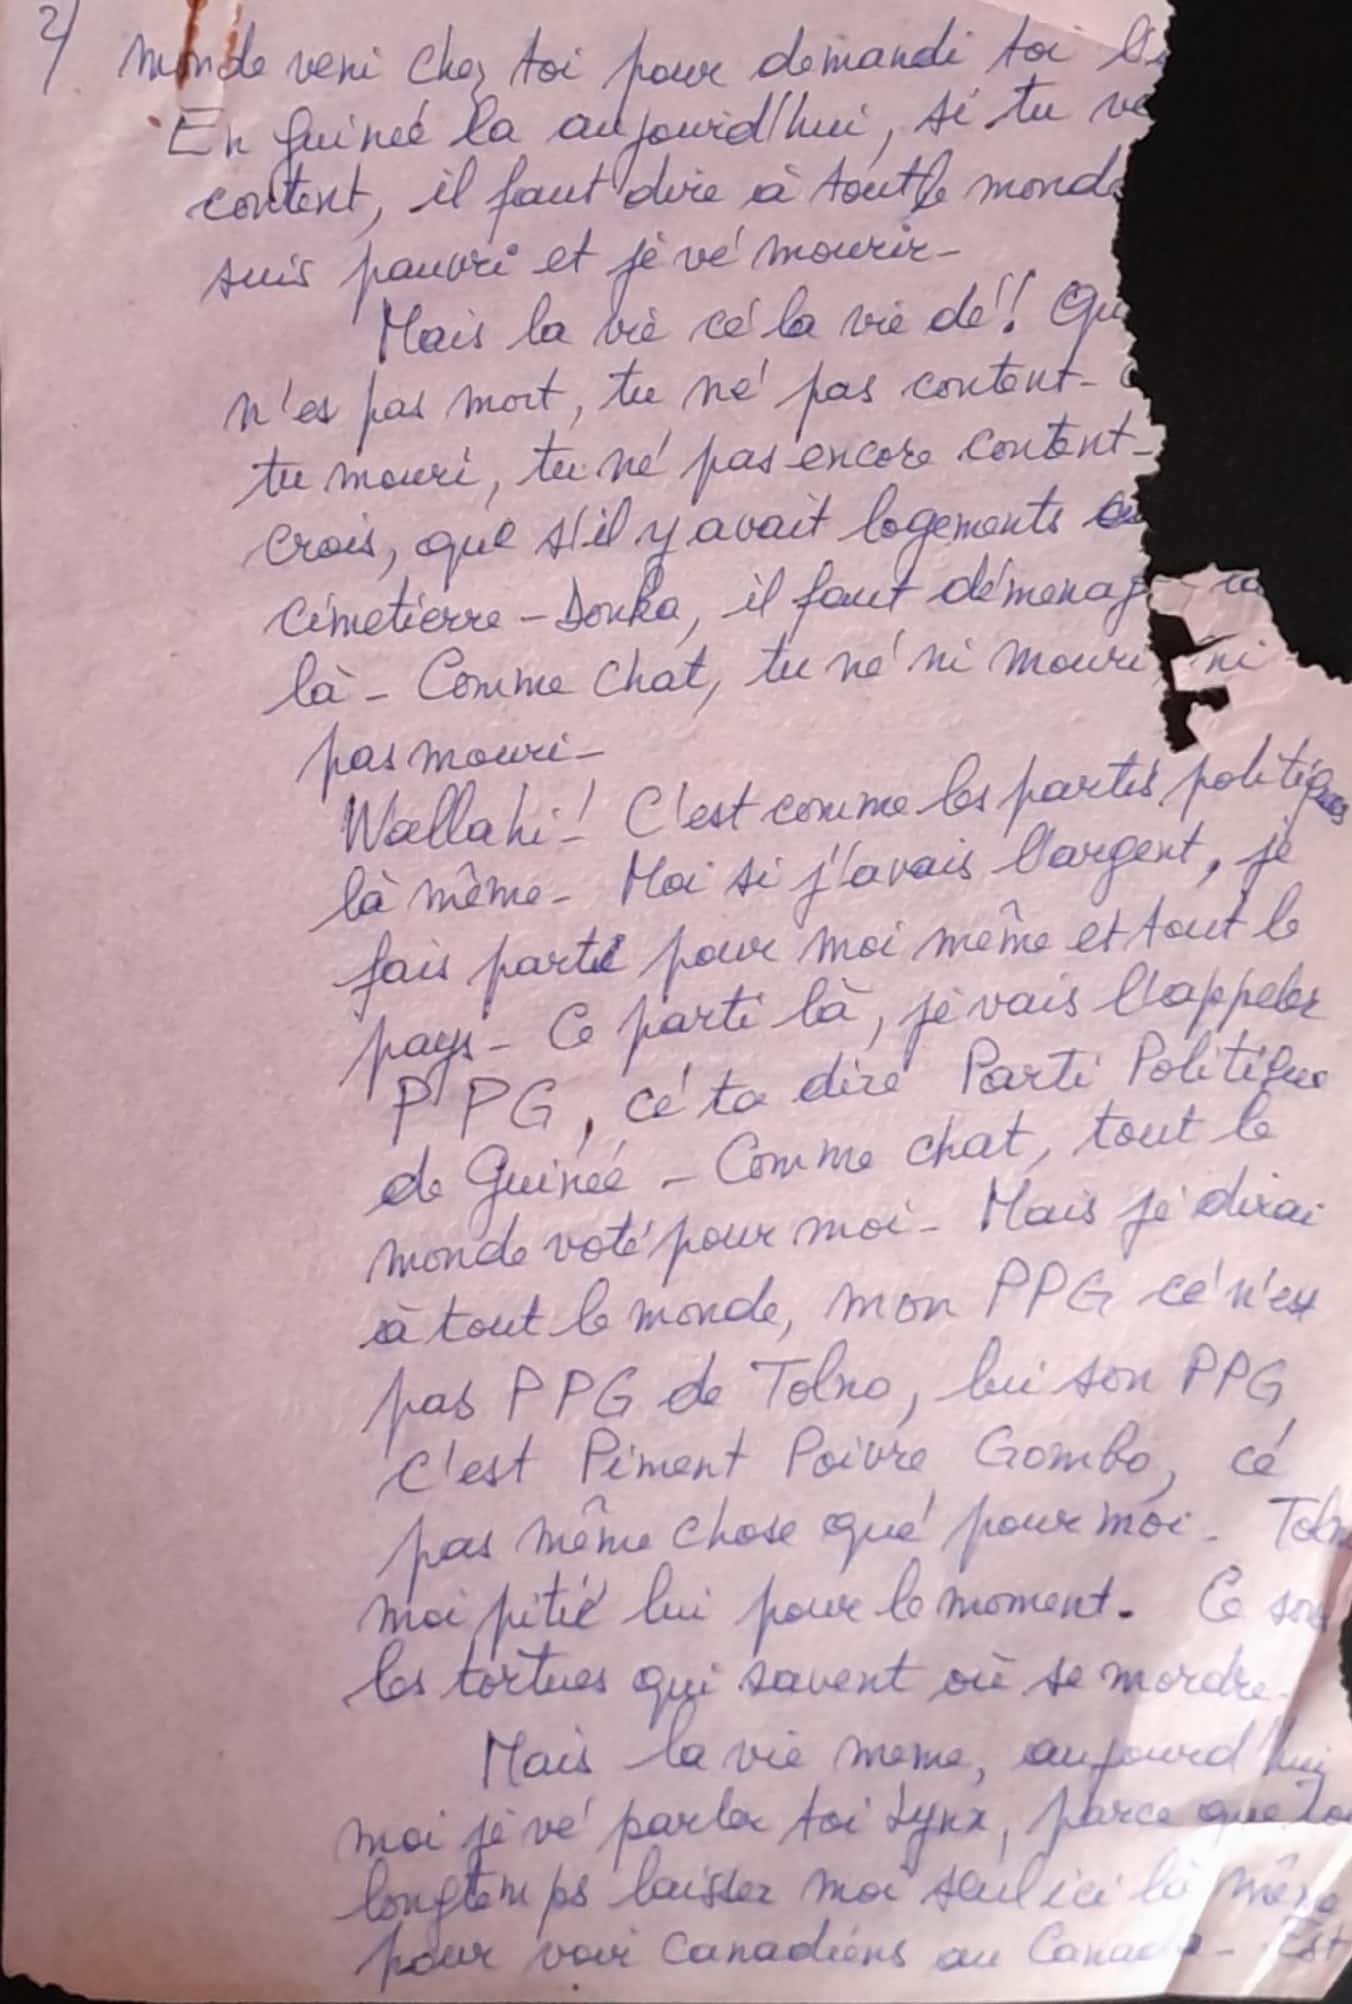 2/
monde veni chez toi pour demandi toi
En Guineé la aujourid'hui, si tu
content, il faut dire à tout le monde
suis pauvri et jé vé mourir -
Mais la vié cé la vie dé! 
n'es pas mort, tu né pas content -
tu mouri, tu né pas encore content -
crois, que s'il y avait logements
cimetierre - Donka, il faut
là - Comme chat, tu né ni mouri ni
pas mouri -
Wallahi! C'est comme les partis politiques
là même - Moi si j'avais l'argent, jé
fais parti pour moi même et tout le
pays - Ce parti là, jé vais l'appeler
PPG, cé ta dire Parti Politique
de Guinéé - Comme chat, tout le
monde voté pour moi - Mais jé dirai
à tout le monde, mon PPG cé n'est
pas PPG de Tolno, lui son PPG
c'est Piment Poivre Gombo, cé
pas même chose qué pour moi -
moi pitié lui pour le moment. Ce
les tortues qui savent où se mordre -
Mais la vie meme, aujourd'hui
moi jé vé parler toi Lynx, parce que
longtemps laisser moi seul ici là même
pour voir canadiens au Canada -